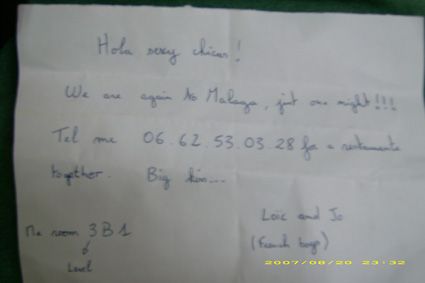 Hola sexy chicas!
We are again to Malaga, just one night!!!
Tel me 06.62.53.03.28 for a restaurante
together. Big kiss...
Loïc and Jo
(French boys)
Ma room 3B1
Level
2007/08/20 23:32